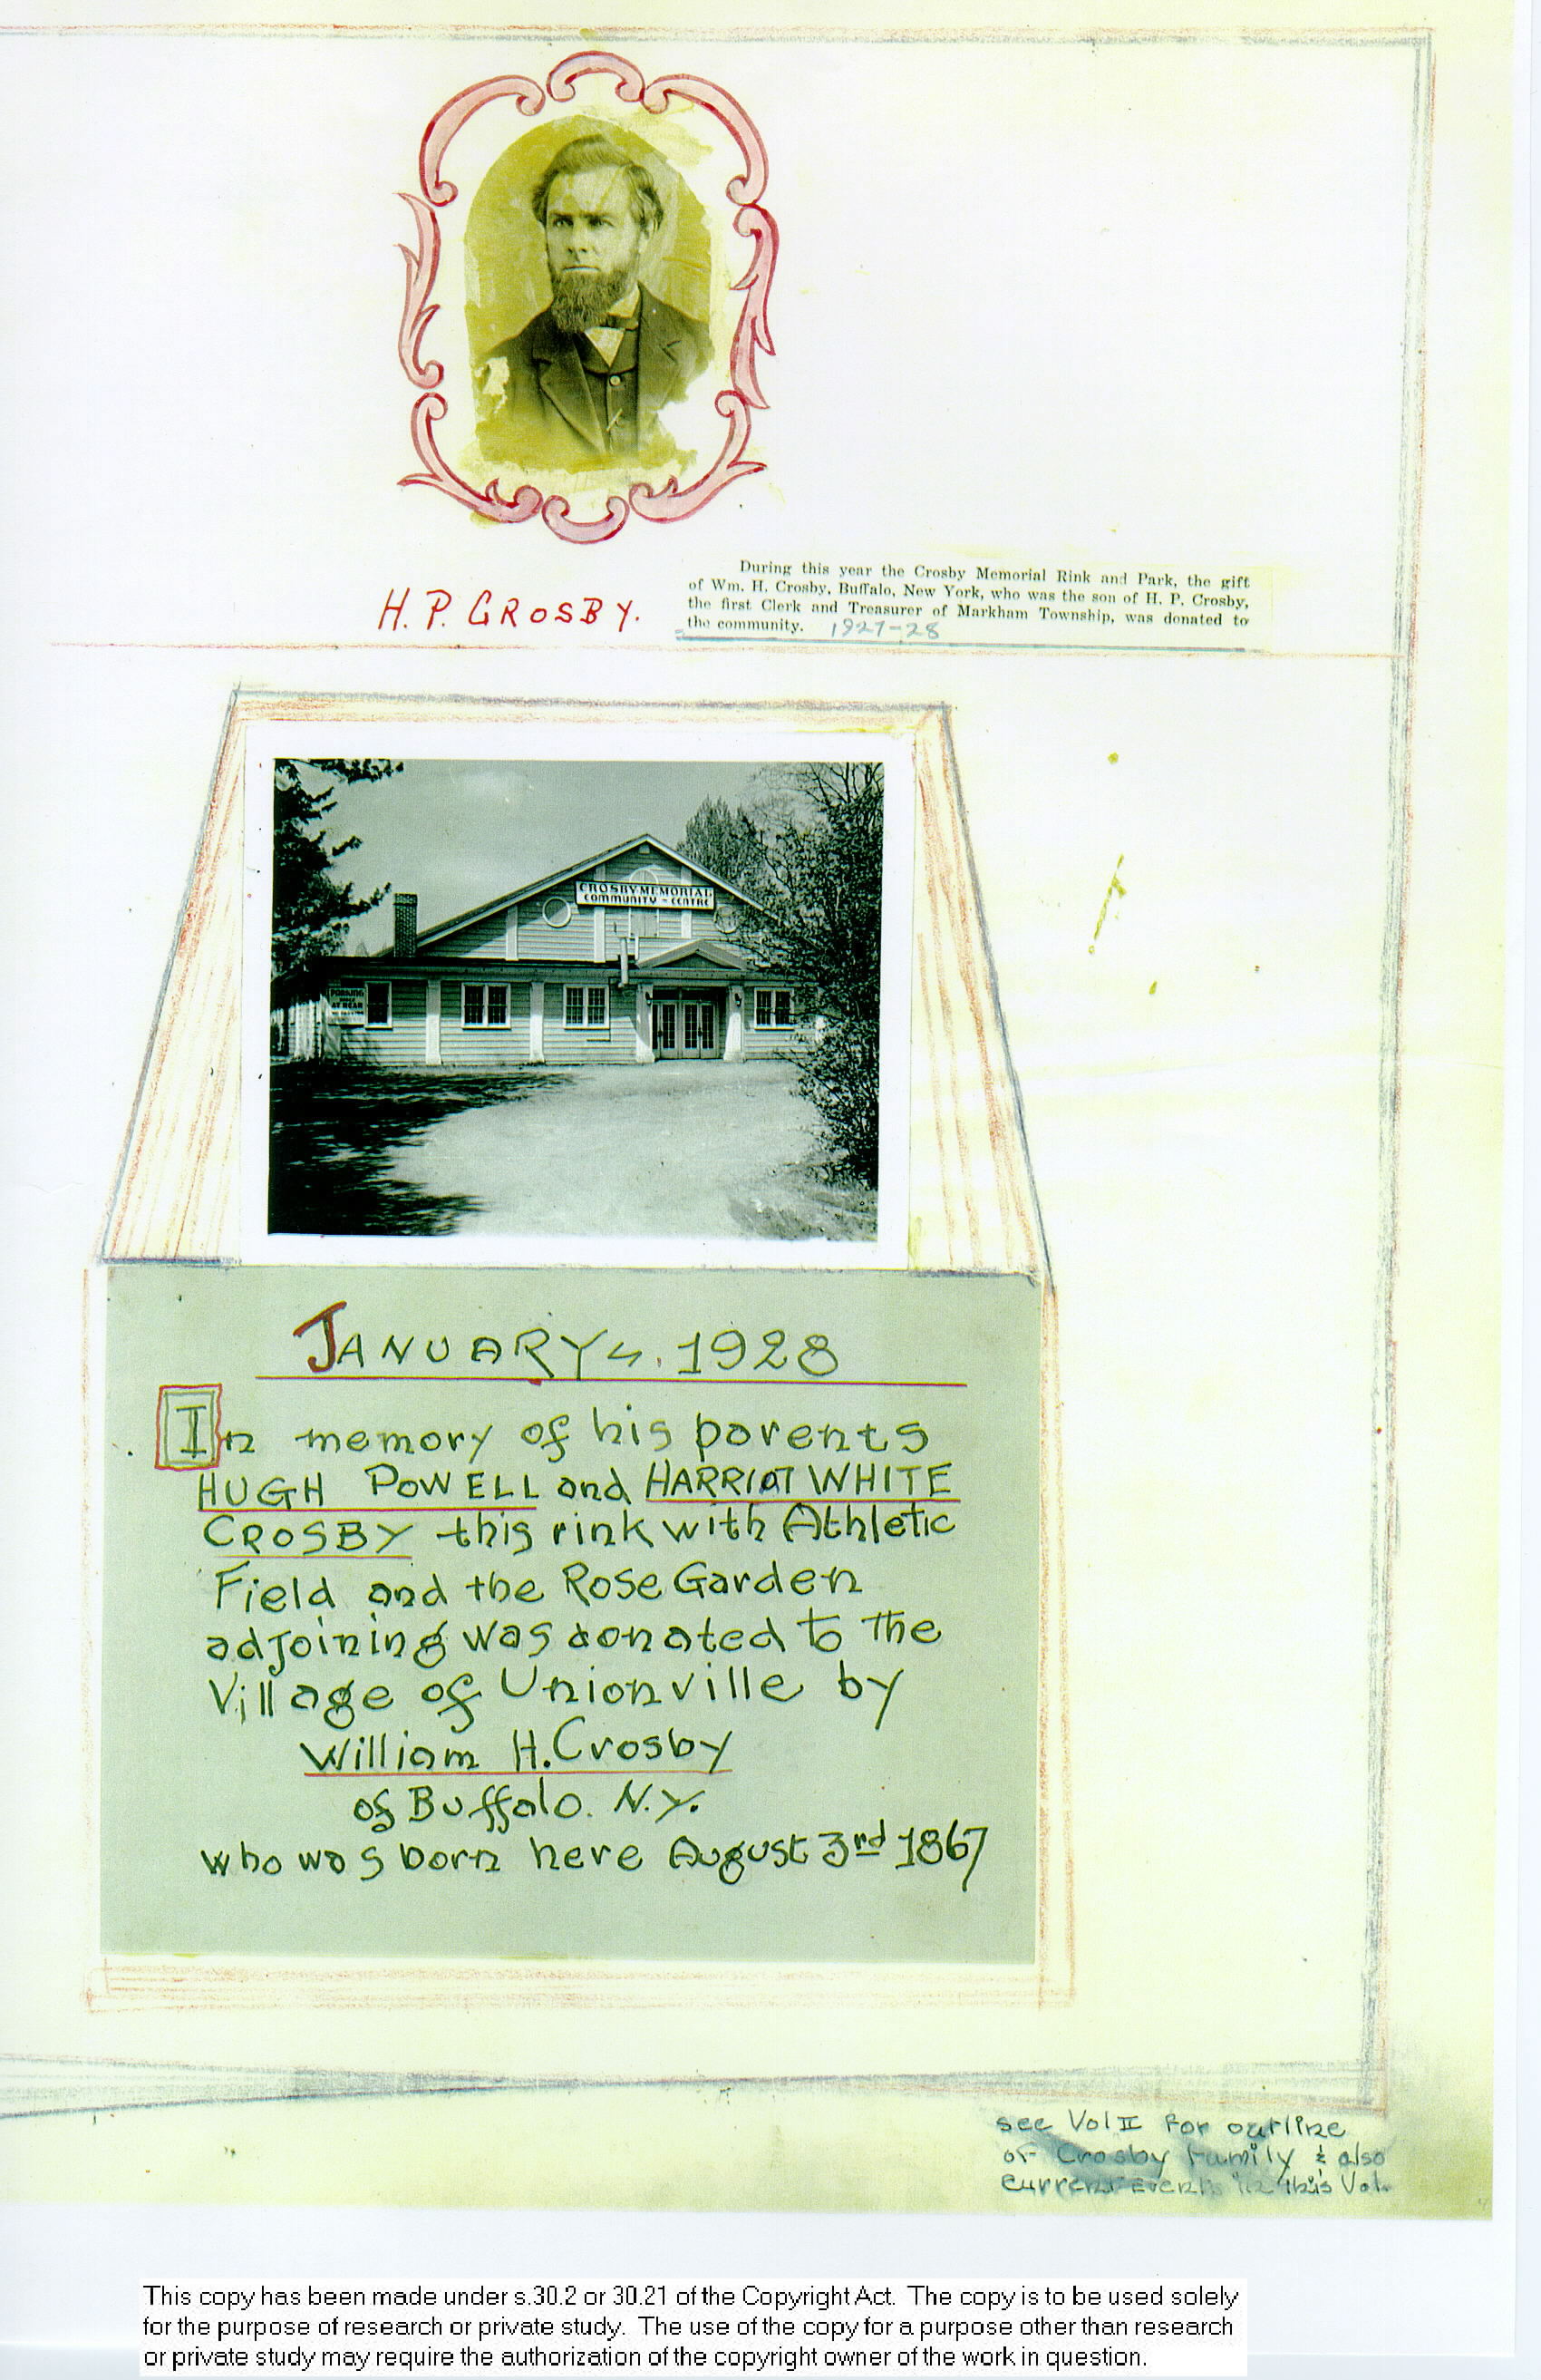 H. P. CROSBY.
During this year the Crosby Memorial Rink and Park, the gift
of Wm. H. Crosby, Buffalo, New York, who was the son of H. P. Crosby,
the first Clerk and Treasurer of Markham Township, was donated to
the community. 1927-28
CROSBY MEMORIAL
COMMUNITY - CENTRE
PARKING
AT REAR
JANUARY 4. 1928
In memory of his parents
HUGH POWELL and HARRIOT WHITE
CROSBY this rink with Athletic
Field and the Rose Garden
adjoining was donated to The
Village of Unionville by
William H. Crosby
of Buffalo. N.Y.
who was born here August 3rd 1867
see Vol II for outline
of Crosby family & also
Current Events in this Vol.
This copy has been made under s.30.2 or 30.21 of the Copyright Act. The copy is to be used solely
for the purpose of research or private study. The use of the copy for a purpose other than research
or private study may require the authorization of the copyright owner of the work in question.